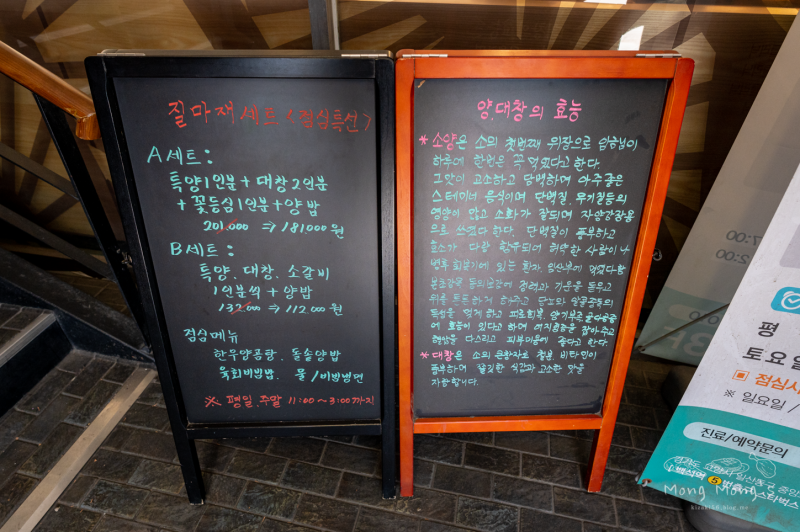 질마재세트 <점심특선>
A세트:
특양1인분 + 대창2인분
+ 꽃등심1인분 + 양밥
201,000 ⇒ 181,000원
B세트:
특양. 대창. 소갈비
1인분씩 + 양밥
132,000 ⇒ 112,000원
점심메뉴
한우양곰탕. 돌솥양밥
육회비빔밥. 물/비빔냉면
※ 평일.주말 11:00~3:00까지
양.대창의 효능
* 소양은 소의 첫번째 위장으로 임금님이
하루에 한번은 꼭 먹었다고 한다.
그맛이 고소하고 담백하며 아주좋은
스테미너 음식이며 단백질. 무기질등의
영양이 많고 소화가 잘되며 자양강장용
으로 쓰였다 한다. 단백질이 풍부하고
효소가 다량 함유되어 허약한 사람이나
병후 회복기에 있는 환자. 임산부에
정력과 기운을 돋우고
위를 튼튼하게 하주고 당뇨와 알콜중독의
독성을 멎게하고 피로회복. 양기부족
에 효능이 있다고 하며 어지러움을 잡아주고
해장을 다스리고 피부미용에 좋다고 한다.
* 대창은 소의 큰창자로 철분 비타민이
풍부하며 쫄깃한 식감과 고소한 맛을
자랑합니다.
07:00
02:00
평
토요일
점심시
※ 일요일 /
진료/예약문의
Mong Mong